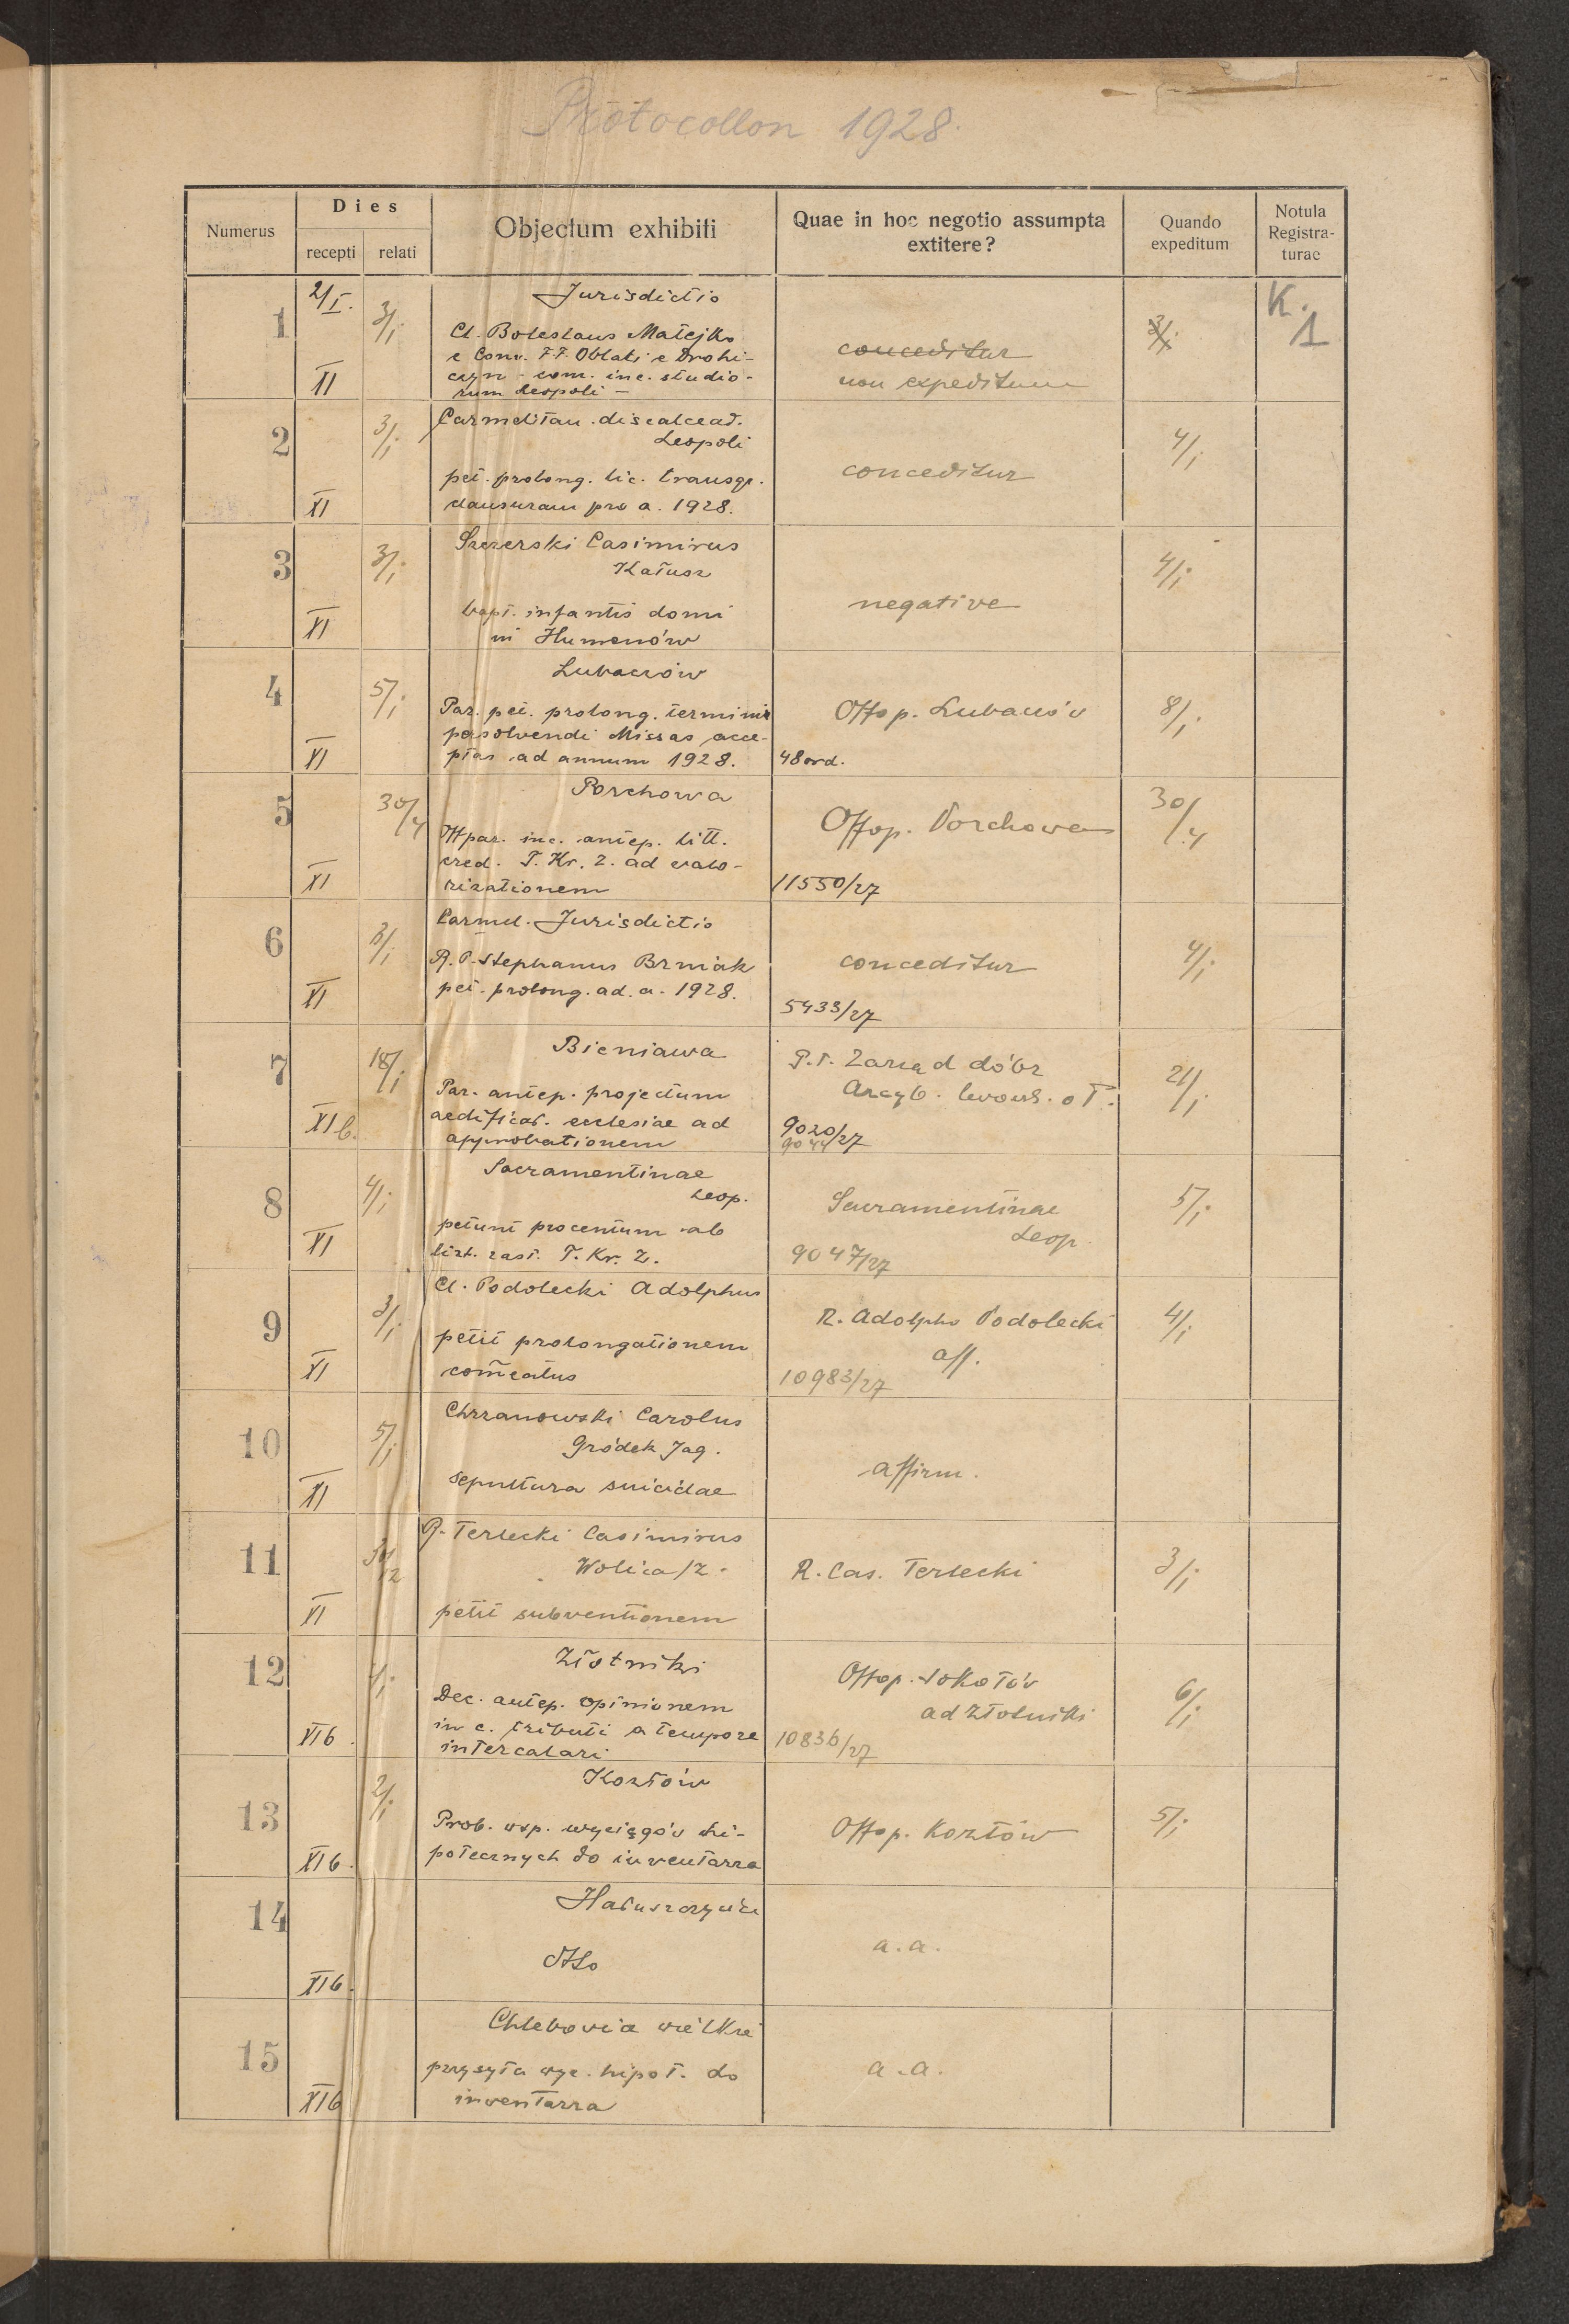 Protocollon 1928.
Numerus
Dies
recepti
relati
Objectum exhibiti
Quae in hoc negotio assumpta
extitere?
Quando
expeditum
Notula
Registra-
turae
1
2/I.
XI
3/i
Jurisdictio
Cl. Boleslaus Matejko
e Conv. F.F. Oblati e Drohi-
czyn - com. inc. studio-
rum Leopoli -
conceditur
non expeditum
K.
1
2
XI
3/i
Carmelitan. discalceat.
Leopoli
pet. prolong. lic. transgr.
clausuram pro a. 1928.
conceditur
4/i
3
XI
3/i
Szczerski Casimirus
Kałusz
bapt. infantis domi
in Humenów
negative
4/i
4
XI
5/i
Lubaczów
Par. pet. prolong. termini
persolvendi Missas acce-
ptas ad annum 1928.
Offop. Lubaczów
48 ord.
8/i
5
XI
30/4
Porchowa
Offpar. inc. antep. litt.
cred. T. Kr. Z. ad valo-
rizationem
Offop. Porchowa
11550/27
30/4
6
XI
3/i
Carmel. Jurisdictio
R. P. Stephanus Brniak
pet. prolong. ad. a. 1928.
conceditur
5433/27
4/i
7
XIb.
18/i
Bieniawa
Par. antep. projectum
aedificat. ecclesiae ad
approbationem
P.T. Zarząd dóbr
Arcyb. lwows. o ł.
9020/27
9044
21/i
8
XI
4/i
Sacramentinae
Leop.
petunt procentum ab
list. zast. T. Kr. Z.
Sacramentinae
Leop.
9047/27
5/i
9
XI
3/i
Cl. Podolecki Adolphus
petit prolongationem
com̄eatus
R. Adolpho Podolecki
aff.
10983/27
4/i
10
XI
5/i
Chrzanowski Carolus
Gródek Jag.
sepultura suicidae
affirm.
11
XI
R. Terlecki Casimirus
Wolica /Z.
petit subventionem
R. Cas. Terlecki
3/i
12
XIb.
Złotniki
Dec. antep. opinionem
in c. tributi a tempore
intercalari
Offop. Sokołów
ad Złotniki
10836/27
6/i
13
XIb.
2/i
Kozłów
Prob. wsp. wyciągów hi-
potecznych do inwentarza
Offop. Kozłów
5/i
14
XIb.
Hałuszczyńce
dtto
a.a.
15
XIb
Chlebowice wielkie
przysyła wyc. hipot. do
inwentarza
a.a.